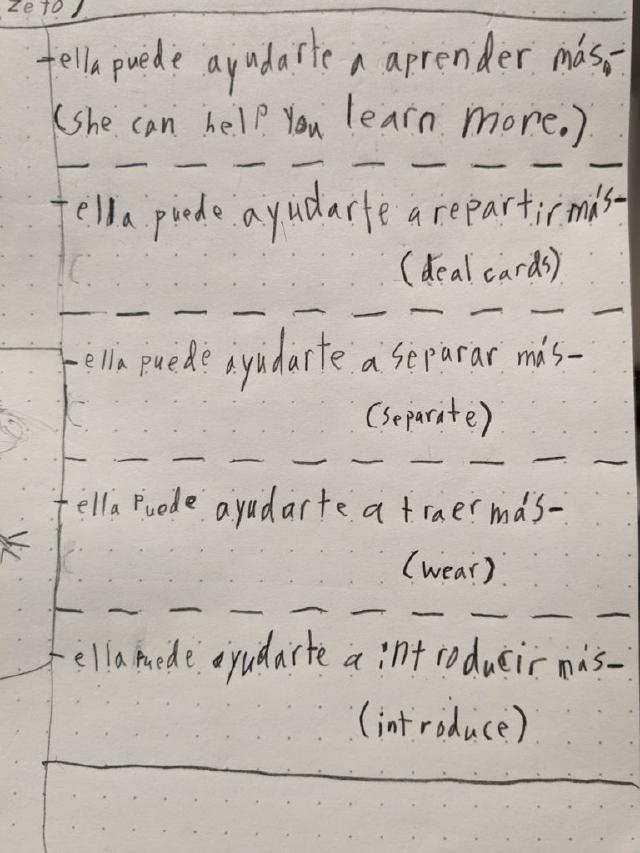 zeto)
-ella puede ayudarte a aprender más.-
(she can help you learn more.)
-ella puede ayudarte a repartir más-
(deal cards)
-ella puede ayudarte a separar más-
(separate)
-ella puede ayudarte a traer más-
(wear)
-ella puede ayudarte a introducir más-
(introduce)